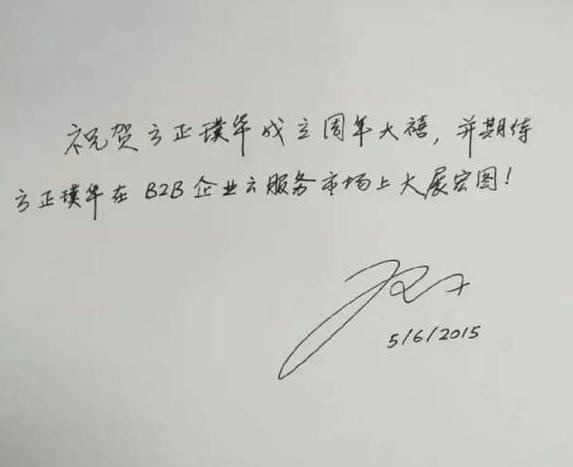 祝贺方正璞华成立周年大禧，并期待
方正璞华在 B2B 企业云服务市场上大展宏图！
5/6/2015